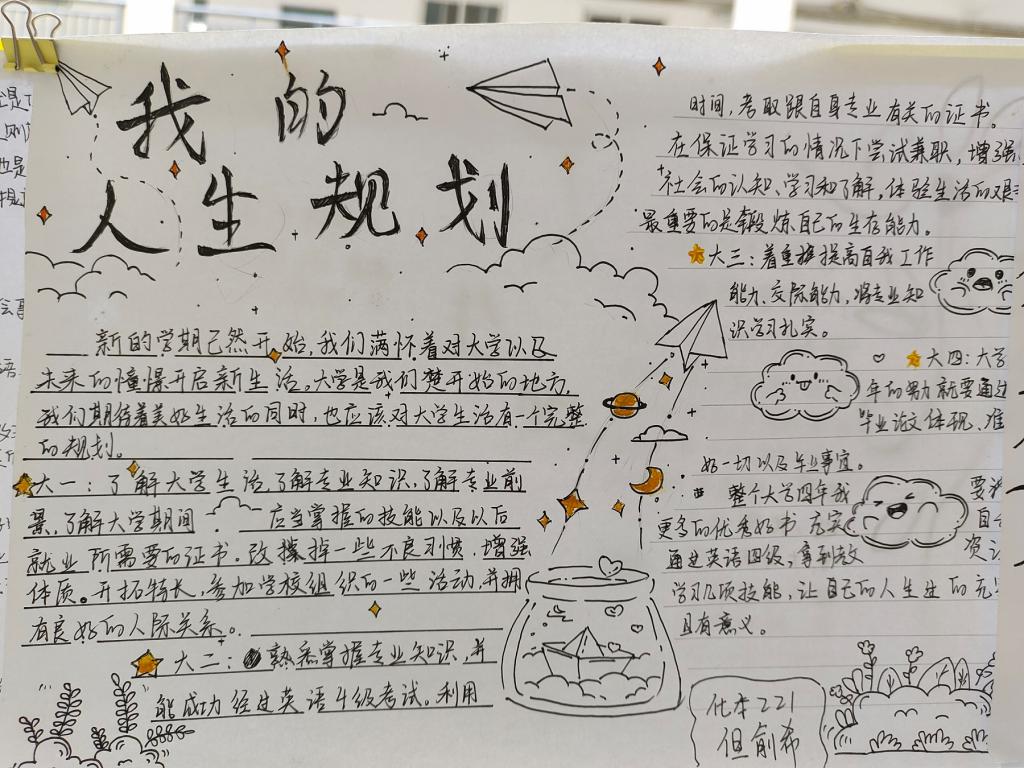 我的
人生规划
新的学期已然开始,我们满怀着对大学以及
未来的憧憬开启新生活。大学是我们梦开始的地方,
我们期待着美好生活的同时,也应该对大学生活有一个完整
的规划。
大一:了解大学生活,了解专业知识,了解专业前
景,了解大学期间 应当掌握的技能以及以后
就业所需要的证书。改掉一些不良习惯,增强
体质。开拓特长,参加学校组织的一些活动,并拥
有良好的人际关系。
大二:熟悉掌握专业知识,并
能成功经过英语4级考试。利用
时间,考取跟自身专业有关的证书。
在保证学习的情况下尝试兼职,增强
社会的认知、学习和了解,体验生活的艰
最重要的是锻炼自己的生存能力。
大三:着重提高自我工作
能力、交际能力,将专业知
识学习扎实。
大四:大学
年的努力就要通过
毕业论文体现、准
好一切以及毕业事宜。
整个大学四年我 要
更多的优秀好书 充实 自
通过英语四级,拿到教 资
学习几项技能,让自己的人生过的充
且有意义。
化本221
但俞希